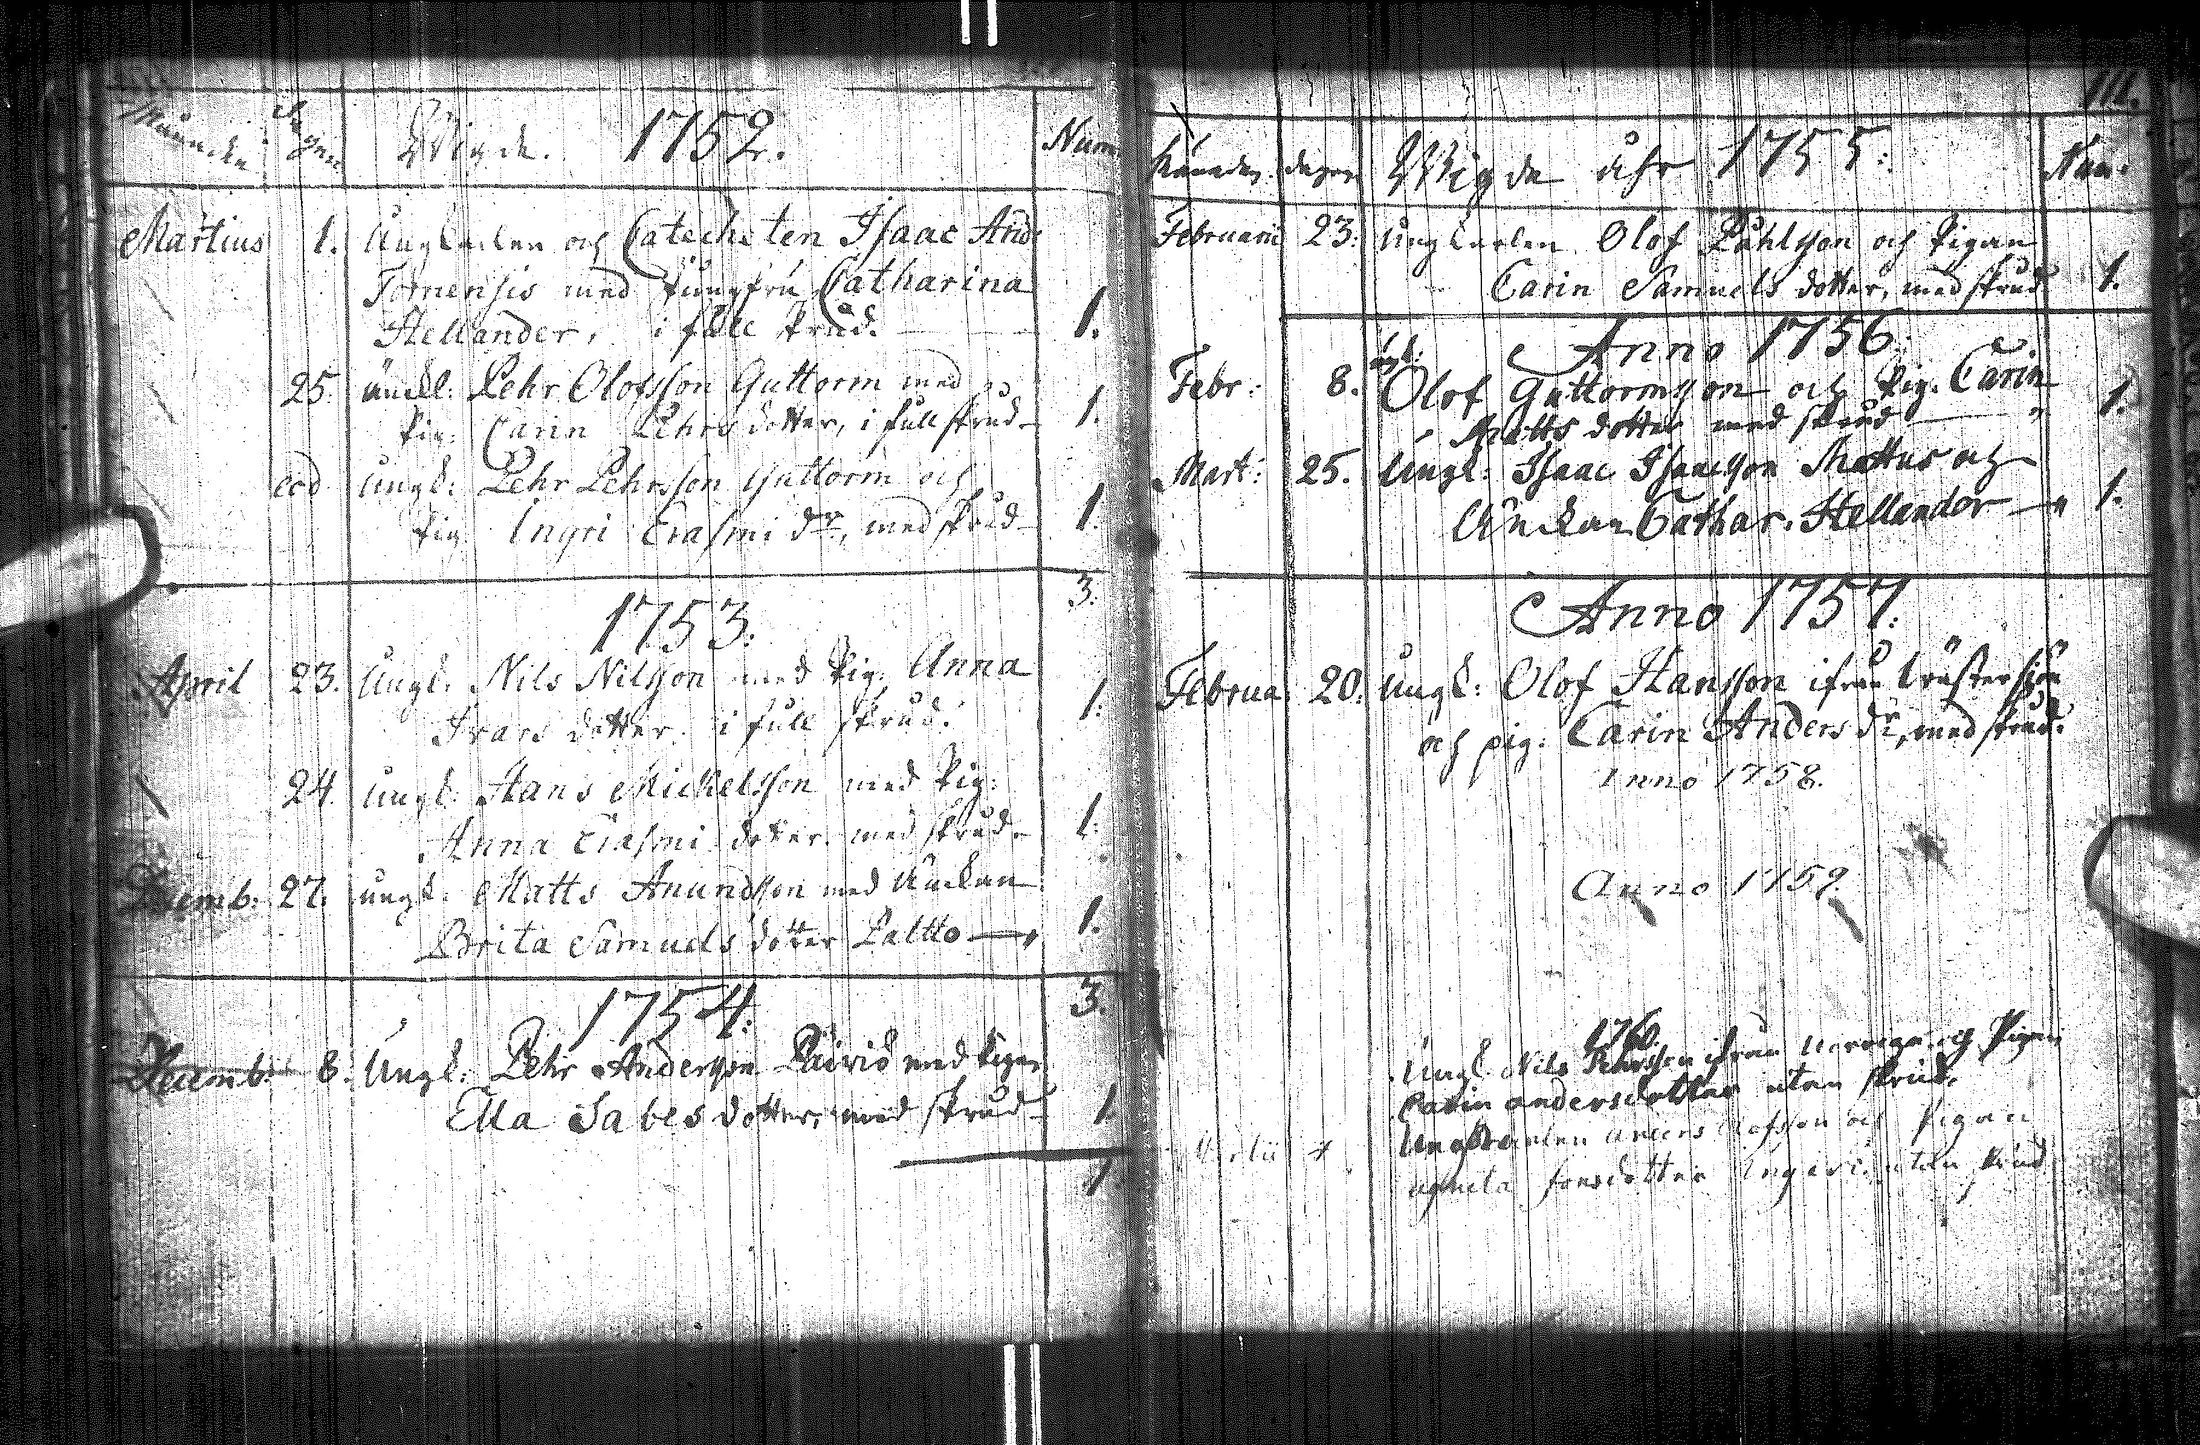 Månade Dagen Wigde. 1752. Num
Martius 1. Ungkarlen och Catecheten Isaac And:
Tornensis med Jungfru Catharina
Hellander, i full skrud. 1.
25. änckl: Pehr Olofsson Guttorm med
Pig: Carin Pehrs dotter, i full skrud 1.
eod Ungk: Pehr Pehrsson Guttorm och
Pig. Ingri Erasmi dr, med skrud 1.
3.
1753:
April 23. Ungk: Nils Nilsson med Pig: Anna
Ivars dotter, i full skrud. 1.
24. Ungk: Hans Mickelsson med Pig:
Anna Erasmi dotter. med skrud. 1.
Decemb: 27. ungk: Matts Anundsson med Änckan
Brita Samuels dotter Paltto 1.
3.
1754:
Decemb: 8. Ungk: Pehr Andersson Päiviö med Pigan
Ella Sabes dotter, med skrud 1.
1.
111.
Månaden dagen Wigde åhr 1755: Num.
Februarii 23. Ungkarlen Olof Påhlsson och Pigan
Carin Samuels dotter, med skrud 1.
Anno 1756.
Febr: 8. ungk: Olof Guttormsson och Pig. Carin
Matts dotter med skrud 1.
Mart: 25. Ungk: Isaac Isaacsson Mattus och
Änckan Cathar. Hellander 1.
Anno 1757:
Februa: 20. Ungk: Olof Hansson ifrån Träsksiön
och pig: Carin Anders dr, med skrud.
Anno 1758.
Anno 1759.
1760.
Ungk. Nils Pehrsson ifrån Norrige och Pigan
Carin andersdotter utan skrud.
Ungkarlen anders olofsson och Pigan
utan skrud